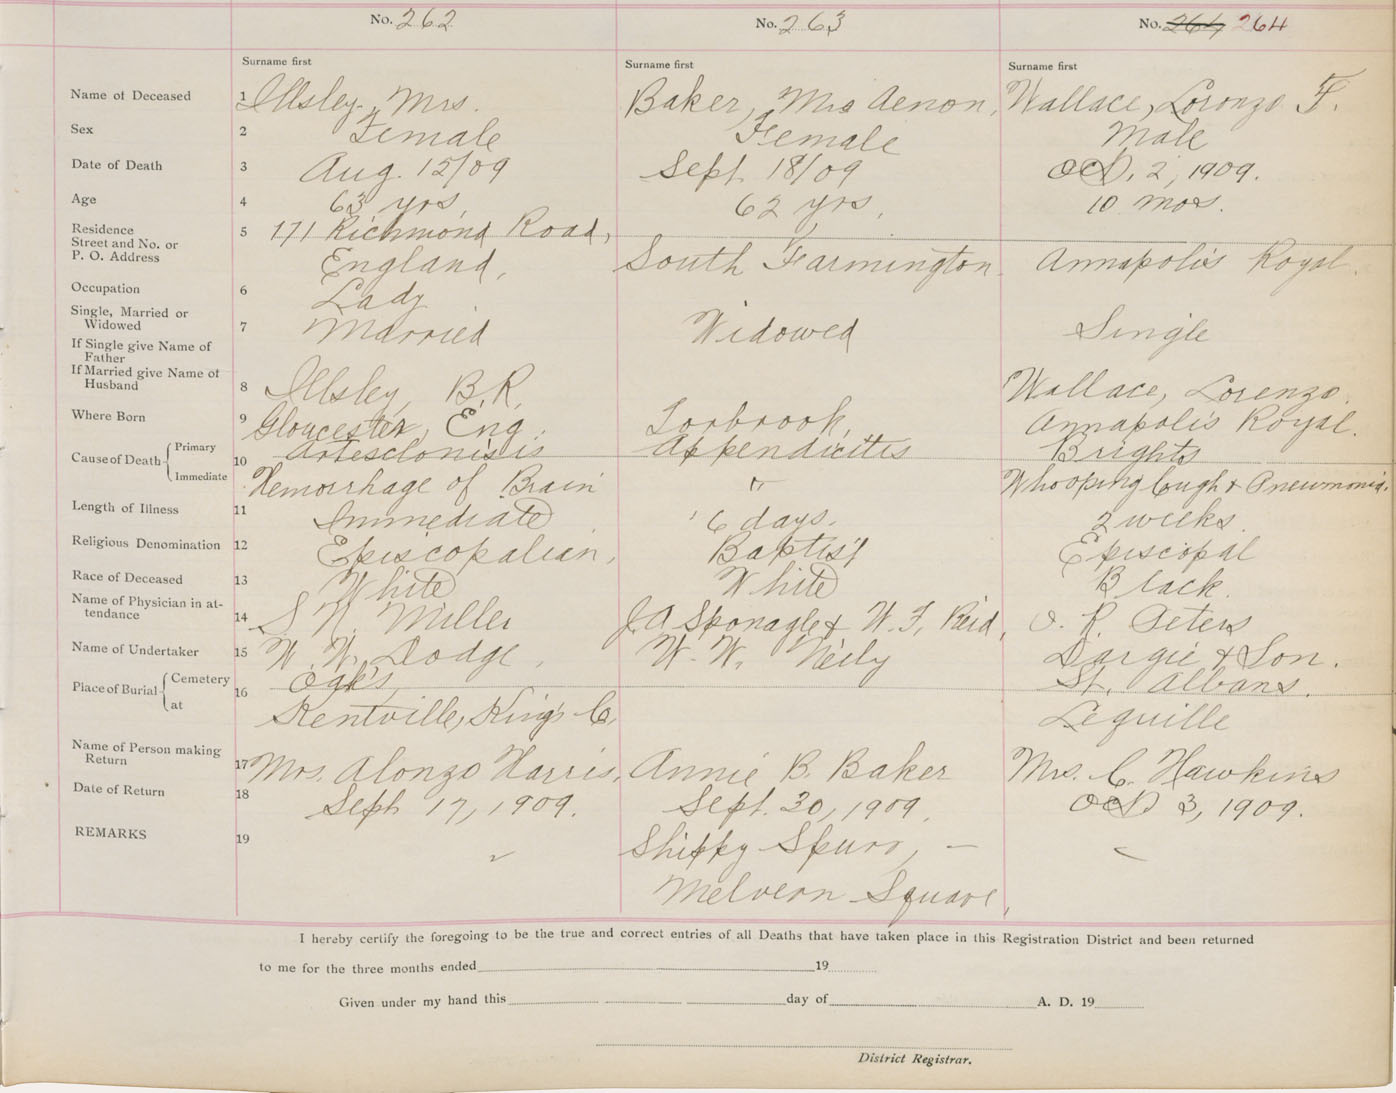 No. 262 No. 263 No. 264 264
Surname first Surname first Surname first
Name of Deceased 1 Illsley, Mrs. Baker, Mrs Aenon, Wallace, Lorenzo F.
Sex 2 Female Female Male
Date of Death 3 Aug. 15/09 Sept. 18/09 Oct. 2, 1909.
Age 4 63 yrs, 62 yrs, 10 mos.
Residence
Street and No. or
P. O. Address
5 171 Richmond Road,
England, South Farmington. Annapolis Royal.
Occupation 6 Lady
Single, Married or
Widowed 7 Married Widowed Single
If Single give Name of
Father
If Married give Name of
Husband 8 Illsley, B.R. Wallace, Lorenzo.
Where Born 9 Gloucester, Eng. Torbrook, Annapolis Royal.
Cause of Death Primary 10 Artesclonisis Appendicitis Brights
Immediate Hemorrhage of Brain " Whooping Cough & Pneumonia.
Length of Illness 11 Immediate 6 days. 2 weeks.
Religious Denomination 12 Episcopalian, Baptist Episcopal
Race of Deceased 13 White White Black.
Name of Physician in at-
tendance 14 S. N. Miller J.A. Sponagle & W. F. Reid, J. R. Peters
Name of Undertaker 15 W. W. Dodge, W. W. Neily Dargie & Son.
Place of Burial Cemetery 16 Oak's, St. Albans.
at Kentville, King's C, Lequille
Name of Person making
Return 17 Mrs. Alonzo Harris, Annie B. Baker Mrs. C. Hawkins
Date of Return 18 Sept. 17, 1909. Sept. 30, 1909. Oct 3, 1909.
REMARKS 19 Shippy Spurr, —
Melvern Square,
I hereby certify the foregoing to be the true and correct entries of all Deaths that have taken place in this Registration District and been returned
to me for the three months ended 19
Given under my hand this day of A. D. 19
District Registrar.